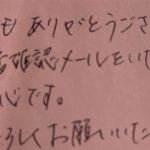 も ありがとうござ
確認メールをいた
心です。
ろしくお願いいた